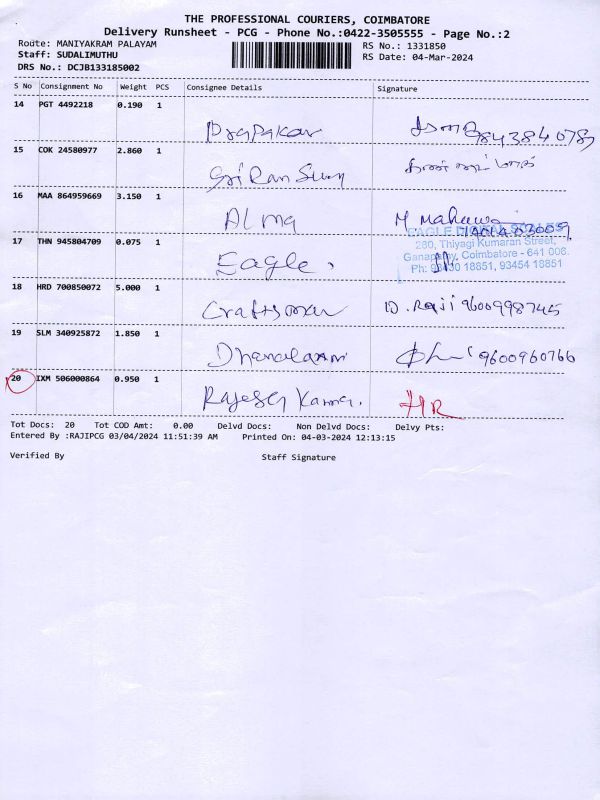 THE PROFESSIONAL COURIERS, COIMBATORE
Delivery Runsheet - PCG - Phone No.:0422-3505555 - Page No.:2
Route: MANIYAKRAM PALAYAM
RS No.: 1331850
Staff: SUDALIMUTHU
RS Date: 04-Mar-2024
DRS No.: DCJB133185002
S No Consignment No Weight PCS Consignee Details Signature
14 PGT 4492218 0.190 1
Prapakar
15 COK 24580977 2.860 1
Sri Ram
16 MAA 864959669 3.150 1
Alma M Mahewa
17 THN 945804709 0.075 1
Eagle.
280, Thiyagi Kumaran Street,
Ganapathy, Coimbatore - 641 006.
18851, 93454 18851
18 HRD 700850072 5.000 1
Craftsman D. Raji 9600998745
19 SLM 340925872 1.850 1
Dhanalaxmi 9600960766
20 IXM 506000864 0.950 1
Rajesh Kumar. HR
Tot Docs: 20 Tot COD Amt: 0.00 Delvd Docs: Non Delvd Docs: Delvy Pts:
Entered By :RAJIPCG 03/04/2024 11:51:39 AM Printed On: 04-03-2024 12:13:15
Verified By Staff Signature